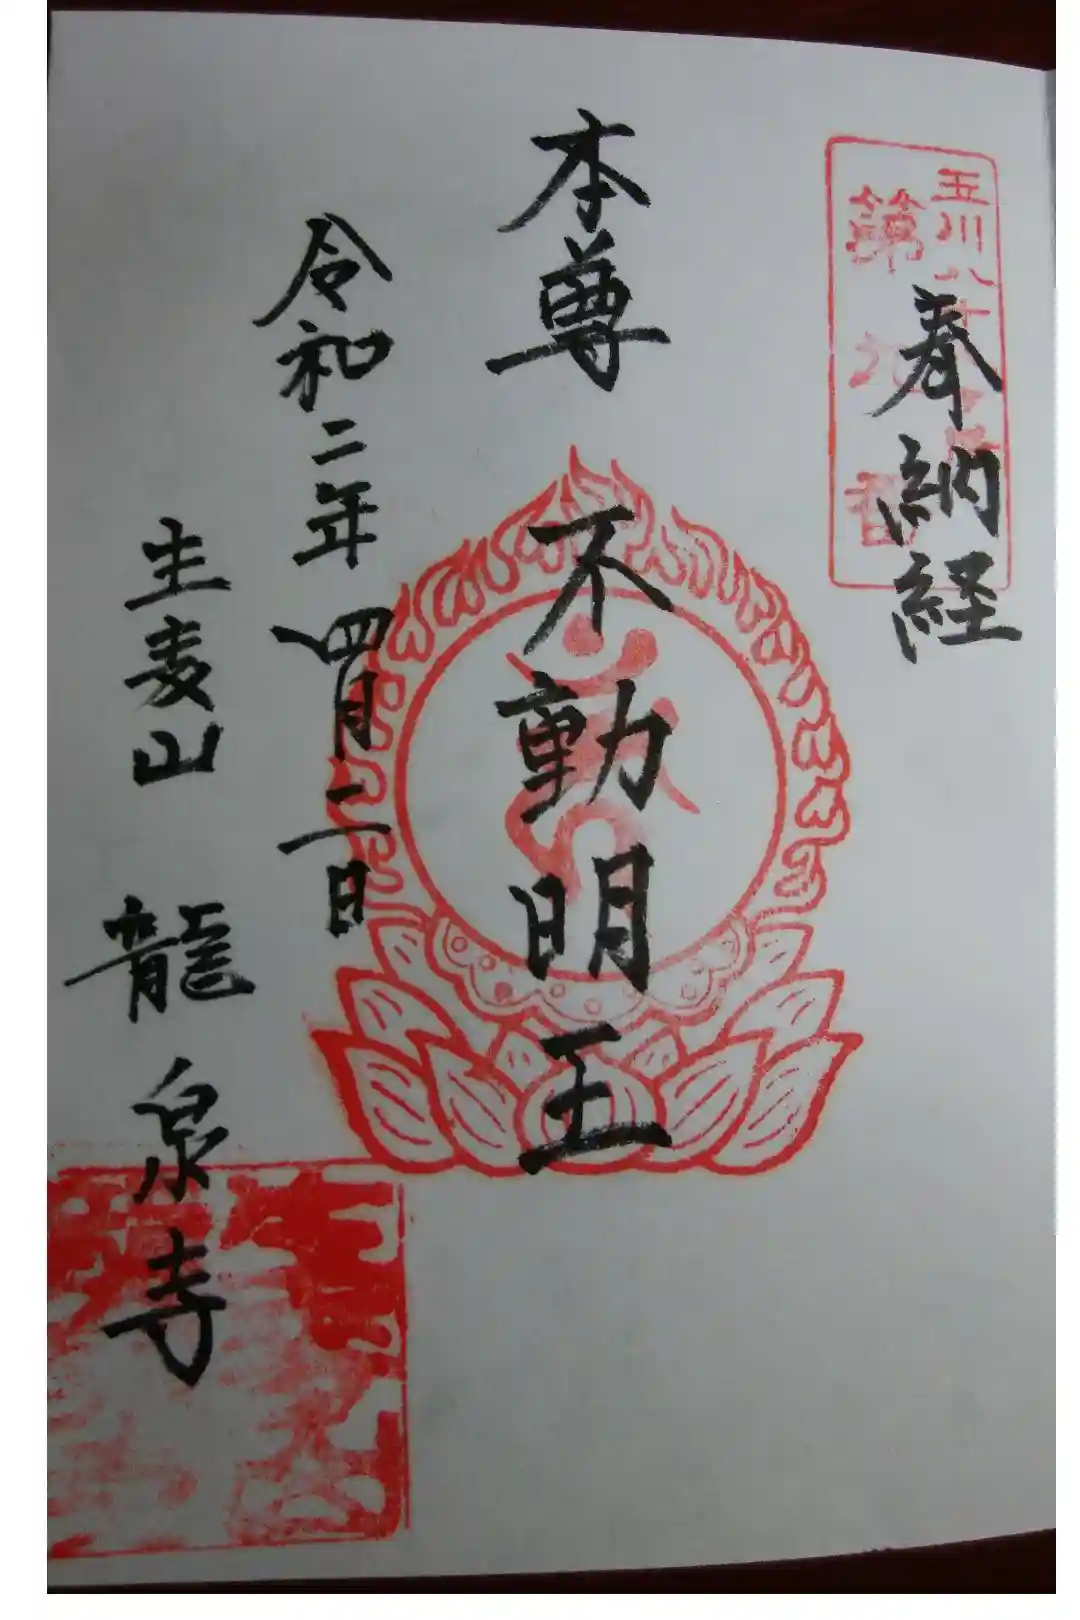 玉川八十
第 番
奉納経
本尊 不動明王
令和二年四月二日
生麦山 龍泉寺